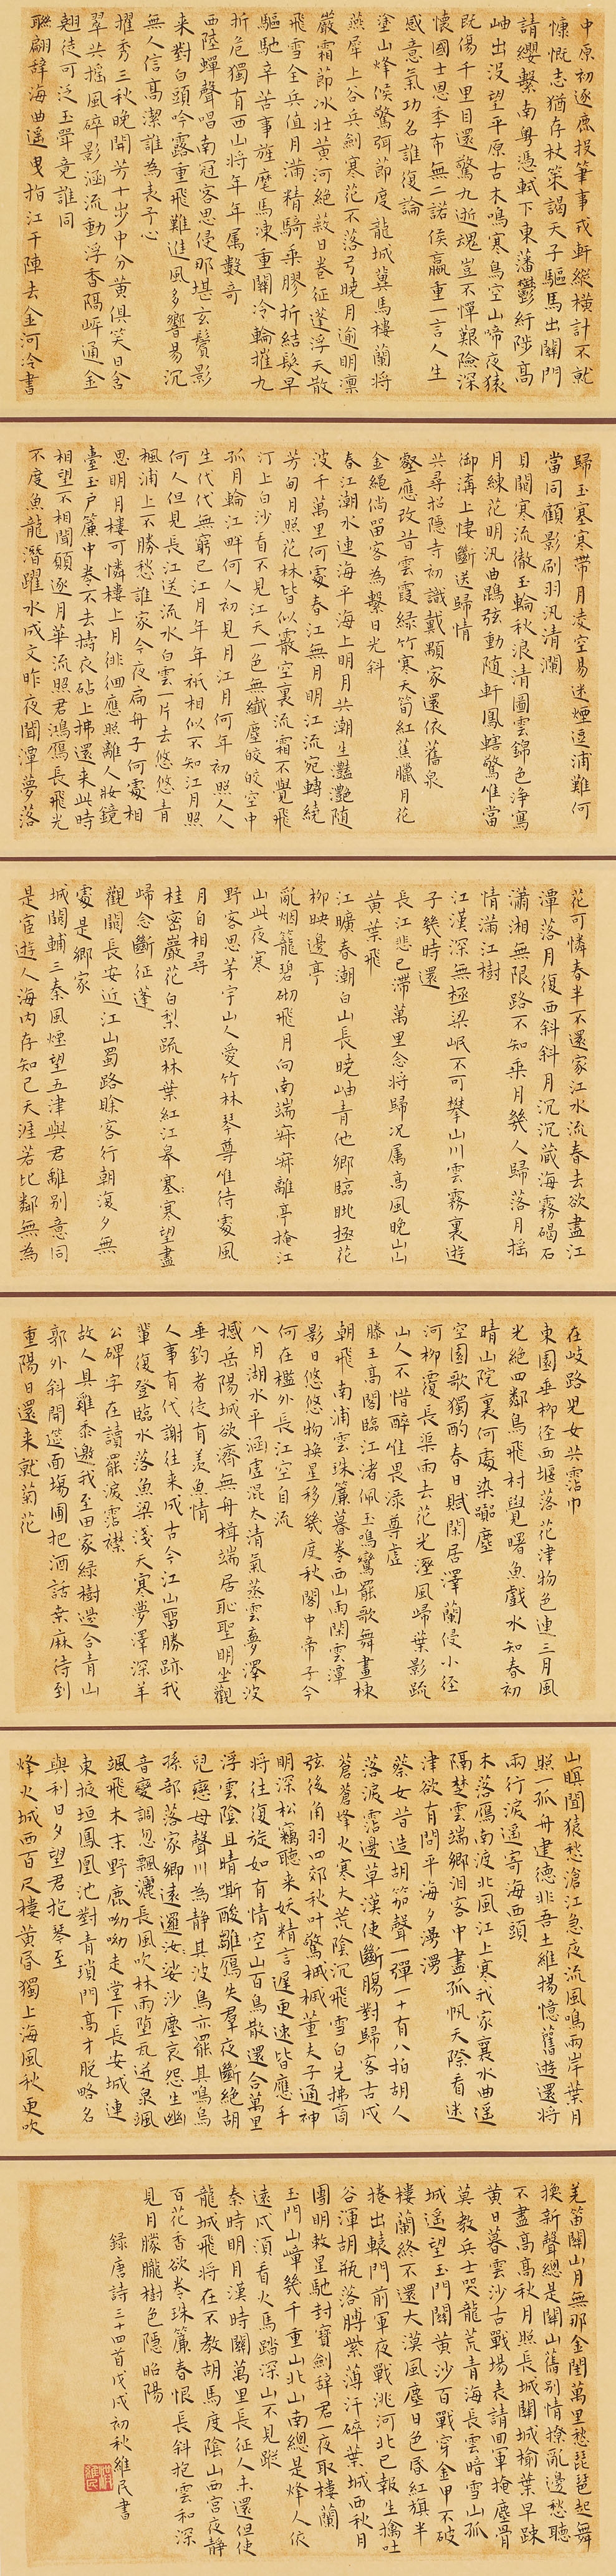 中原初逐鹿投筆事戎軒縱橫計不就
慷慨志猶存杖策謁天子驅馬出關門
請纓繫南粵憑軾下東藩鬱紆陟高
岫出没望平原古木鳴寒鳥空山啼夜猿
既傷千里目還驚九逝魂豈不憚艱險深
懷國士恩季布無二諾侯嬴重一言人生
感意氣功名誰復論
塗山烽候驚弭節度龍城冀馬樓蘭將
燕犀上谷兵劍寒花不落弓曉月逾明凛
嚴霜節冰壯黄河絶蔽日卷征蓬浮天散
飛雪全兵值月滿精騎乘膠折結髮早
驅馳辛苦事旌麾馬凍重關冷輪摧九
折危獨有西山將年年属數奇
西陸蟬聲唱南冠客思侵那堪玄鬢影
来對白頭吟露重飛難進風多響易沉
無人信高潔誰為表予心
擢秀三秋晚開芳十步中分黄俱笑日含
翠共摇風碎影涵流動浮香隔岸通金
翹徒可泛玉斝竟誰同
聯翩辭海曲遥曳指江干陣去金河冷書
歸玉塞寒帶月凌空易迷煙逗浦難何
當同顧影刷羽汎清瀾
貝闕寒流徹玉輪秋浪清圖雲錦色浄寫
月練花明汎曲鷁弦動随軒鳳轄驚惟當
御溝上悽斷送歸情
共尋招隱寺初識戴顒家還依舊泉
壑應改昔雲霞緑竹寒天筍紅蕉臘月花
金繩倘留客為繫日光斜
春江潮水連海平海上明月共潮生灔灔随
波千萬里何處春江無月明江流宛轉繞
芳甸月照花林皆似霰空裏流霜不覺飛
汀上白沙看不見江天一色無纖塵皎皎空中
孤月輪江畔何人初見月江月何年初照人人
生代代無窮已江月年年衹相似不知江月照
何人但見長江送流水白雲一片去悠悠青
楓浦上不勝愁誰家今夜扁舟子何處相
思明月樓可憐樓上月徘徊應照離人妝鏡
臺玉户簾中卷不去擣衣砧上拂還来此時
相望不相聞願逐月華流照君鴻雁長飛光
不度魚龍潛躍水成文昨夜閒潭夢落
花可憐春半不還家江水流春去欲盡江
潭落月復西斜斜月沉沉藏海霧碣石
瀟湘無限路不知乘月幾人歸落月揺
情滿江樹
江漢深無極梁岷不可攀山川雲霧裏遊
子幾時還
長江悲已滯萬里念将歸况属高風晚山山
黄葉飛
江曠春潮白山長曉岫青他鄉臨眺極花
柳映邊亭
亂烟籠碧砌飛月向南端寂寂離亭掩江
山此夜寒
野客思茅宇山人愛竹林琴尊惟待處風
月自相尋
桂密巖花白梨疏林葉紅江皋寒望盡
歸念斷征蓬
觀闕長安近江山蜀路賒客行朝復夕無
處是鄉家
城闕輔三秦風煙望五津與君離别意同
是宦遊人海内存知己天涯若比鄰無為
在歧路兒女共霑巾
東園垂柳徑西堰落花津物色連三月風
光絶四鄰鳥飛村覺曙魚戲水知春初
晴山院裏何處染囂塵
空園歌獨酌春日賦閑居澤蘭侵小徑
河柳覆長渠雨去花光溼風歸葉影疏
山人不惜醉惟畏渌尊虚
滕王高閣臨江渚佩玉鳴鸞罷歌舞畫棟
朝飛南浦雲珠簾暮卷西山雨閑雲潭
影日悠悠物换星移幾度秋閣中帝子今
何在檻外長江空自流
八月湖水平涵虚混太清氣蒸雲夢澤波
撼岳陽城欲濟無舟楫端居恥聖明坐觀
垂釣者徒有羡魚情
人事有代謝往来成古今江山留勝跡我
輩復登臨水落魚梁淺天寒夢澤深羊
公碑字在讀罷淚霑襟
故人具雞黍邀我至田家緑樹邊合青山
郭外斜開筵面場圃把酒話桑麻待到
重陽日還来就菊花
山暝聞猿愁滄江急夜流風鳴兩岸葉月
照一孤舟建德非吾土維揚憶舊遊還将
兩行淚遥寄海西頭
木落雁南渡北風江上寒我家襄水曲遥
隔楚雲端鄉淚客中盡孤帆天際看迷
津欲有問平海夕漫漫
蔡女昔造胡笳聲一彈一十有八拍胡人
落淚霑邊草漢使斷腸對歸客古戍
蒼蒼烽火寒大荒陰沉飛雪白先拂商
弦後角羽四郊秋叶驚摵摵董夫子通神
明深松竊聽来妖精言遲更速皆應手
将往復旋如有情空山百鳥散還合萬里
浮雲陰且晴嘶酸雛雁失羣夜斷絶胡
兒戀母聲川為静其波鳥亦罷其鳴烏
孫部落家鄉遠邏娑沙塵哀怨生幽
音變調忽飄灑長風吹林雨墮瓦迸泉颯
颯飛木末野鹿呦呦走堂下長安城連
東掖垣鳳凰池對青瑣門高才脱略名
與利日夕望君抱琴至
烽火城西百尺樓黄昏獨上海風秋更吹
羌笛關山月無那金閨萬里愁琵琶起舞
换新聲總是關山舊别情撩亂邊愁聽
不盡高高秋月照長城關城榆葉早疎
黄日暮雲沙古戰場表請回軍掩塵骨
莫教兵士哭龍荒青海長雲暗雪山孤
城遥望玉門關黄沙百戰穿金甲不破
樓蘭終不還大漠風塵日色昏紅旗半
捲出轅門前軍夜戰洮河北已報生擒吐
谷渾胡瓶落膊紫薄汗碎葉城西秋月
團明敕星馳封寶劍辭君一夜取樓蘭
玉門山嶂幾千重山北山南總是烽人依
遠戍須看火馬踏深山不見蹤
秦時明月漢時關萬里長征人未還但使
龍城飛將在不教胡馬度陰山西宫夜静
百花香欲卷珠簾春恨長斜抱雲和深
見月朦朧樹色隱昭陽
録唐詩三十四首戊戌初秋維民書